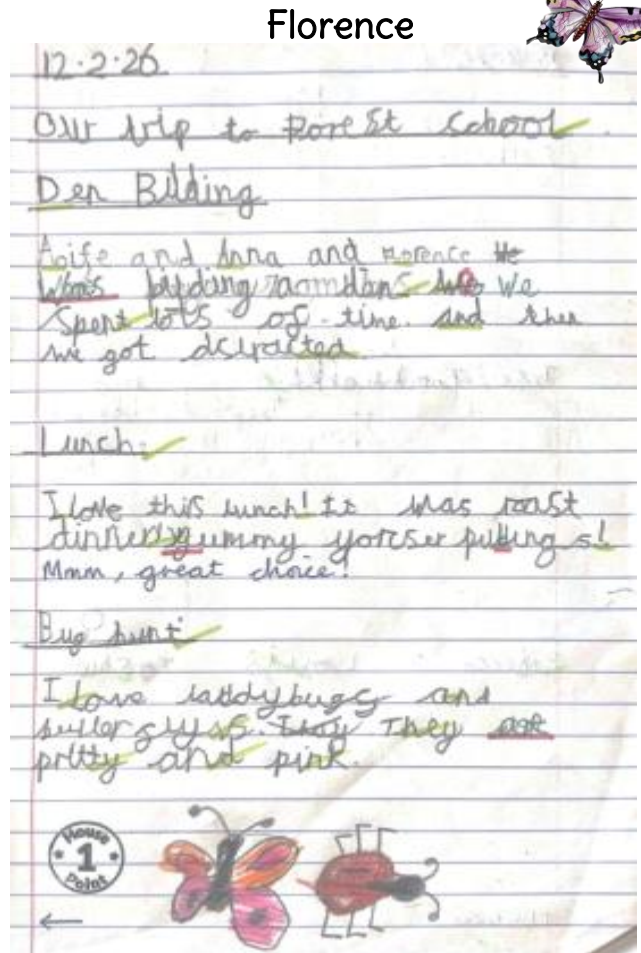 Florence
12.2.26
Our trip to Forest School
Den Bilding
Aoife and Anna and Florence
Was bilding We
Spent lots of time. and then
we got distracted
Lunch
I love this lunch! It was roast
dinner yummy yorcser pudding s!
Mmm, great choice!
Bug hunt
I love laddybugs and
butterflyss. They They are
pritty and pink.
House
1
Point